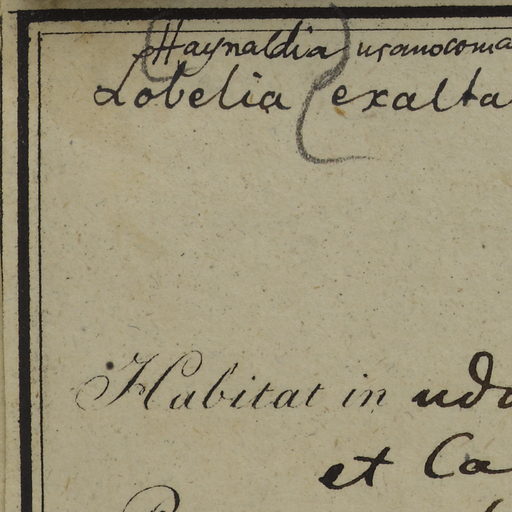 Haynaldia uranocoma
Lobelia exalta
Habitat in udo
et Ca